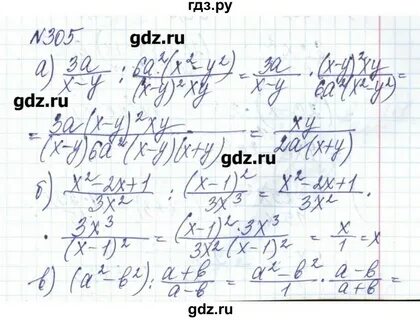 гдз.ру
№305.
gdz.ru gdz.ru
а) 3a/(x-y) : 6a²(x²-y²)/((x-y)²xy) = 3a/(x-y) · (x-y)²xy/(6a²(x²-y²)) =
= 3a(x-y)²xy/((x-y)6a²(x-y)(x+y)) = xy/(2a(x+y))
gdz.ru gdz.ru
б) (x²-2x+1)/3x² : (x-1)²/3x³ = (x²-2x+1)/3x² ·
· 3x³/(x-1)² = (x-1)²·3x³/(3x²(x-1)²) = x/1 = x
gdz.ru gdz.ru
в) (a²-b²) : (a+b)/(a-b) = (a²-b²)/1 · (a-b)/(a+b) =
gdz.ru gdz.ru